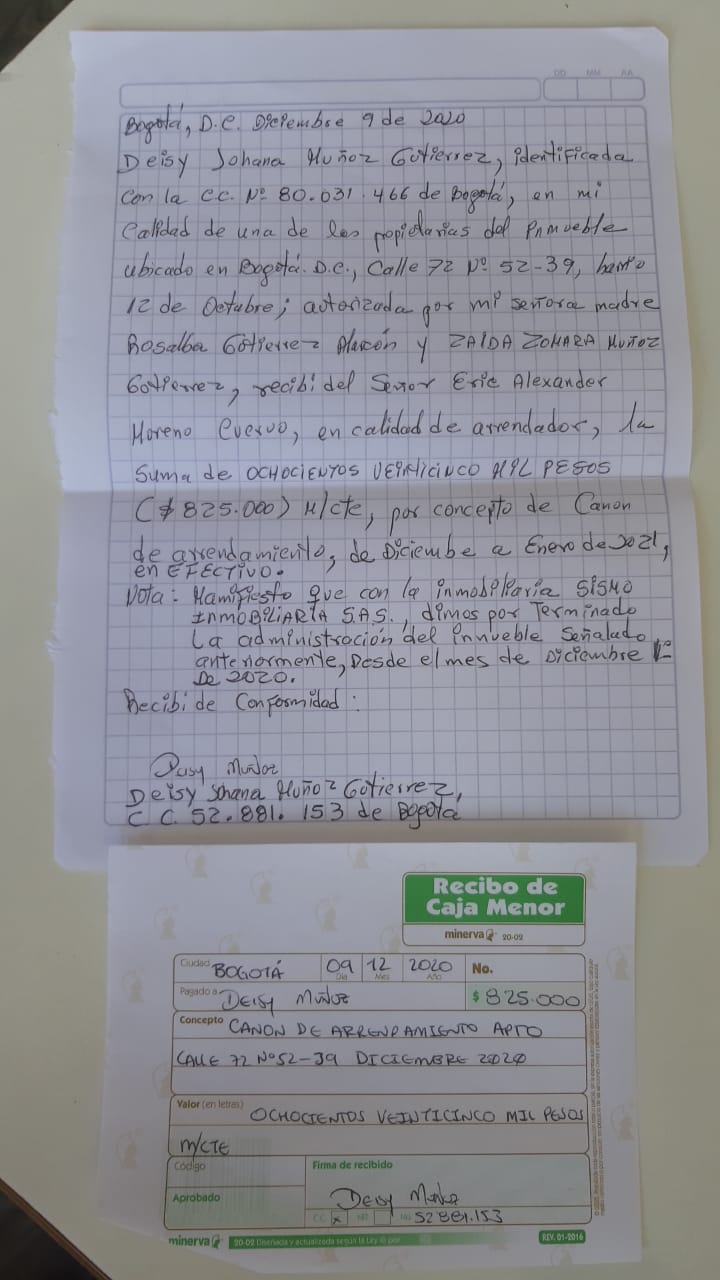 DD MM AA
Bogotá, D.C. Diciembre 9 de 2020
Deisy Johana Muñoz Gutierrez, identificada
con la C.C. Nº 80.031.466 de Bogotá, en mi
calidad de una de las propietarias del inmueble
ubicado en Bogotá. D.C., Calle 72 Nº 52-39, barrio
12 de Octubre; autorizada por mi señora madre
Rosalba Gutierrez Alarcón y ZAIDA ZOHARA MUÑOZ
Gutierrez, recibí del Señor Eric Alexander
Moreno Cuervo, en calidad de arrendador, la
Suma de OCHOCIENTOS VEINTICINCO MIL PESOS
($ 825.000) M/cte, por concepto de Canon
de arrendamiento, de Diciembe a Enero de 2021,
en EFECTIVO.
Nota: Manifiesto que con la inmobiliaria SISMO
INMOBILIARIA S.A.S., dimos por Terminado
La administración del innueble Señalado
anteriormente, Desde el mes de Diciembre
De 2020.
Recibi de Conformidad:
Deisy Muñoz
Deisy Johana Muñoz Gutierrez,
C C. 52.881.153 de Bogotá
Recibo de
Caja Menor
minerva 20-02
Ciudad BOGOTÁ 09 12 2020 No.
Día Mes Año
Pagado a DEISY MUÑOZ $ 825.000
Concepto CANON DE ARRENDAMIENTO APTO
CALLE 72 Nº 52-39 DICIEMBRE 2020
Valor (en letras) OCHOCIENTOS VEINTICINCO MIL PESOS
M/CTE
Código
Firma de recibido
Aprobado
Deisy Muñoz
CC x NIT No 52881.153
minerva 20-02 Diseñada y actualizada según la Ley © por REV. 01-2016